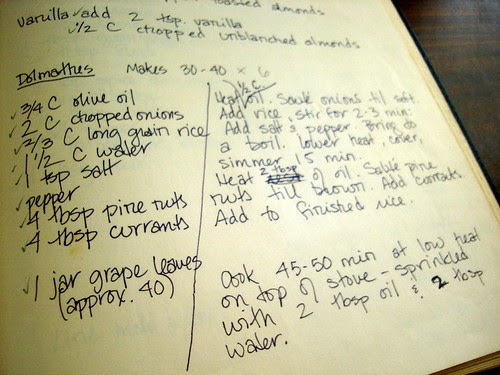 toasted almonds
vanilla ✓ add 2 tsp. vanilla
✓ 1/2 C chopped unblanched almonds
Dolmathes Makes 30-40 × 6
✓ 3/4 C olive oil
✓ 2 C chopped onions
✓ 2/3 C long grain rice
✓ 1 1/2 C water
✓ 1 tsp salt
✓ pepper
✓ 4 tbsp pine nuts
✓ 4 tbsp currants
✓ 1 jar grape leaves
(approx. 40)
1/2 C.
Heat oil. Sauté onions til soft.
Add rice, stir for 2-3 min.
Add salt & pepper. Bring to
a boil. Lower heat, cover,
simmer 15 min.
Heat 2 tbsp of oil. Sauté pine
nuts till brown. Add currants.
Add to finished rice.
Cook 45-50 min at low heat
on top of stove - sprinkled
with 2 tbsp oil & 2 tbsp
water.